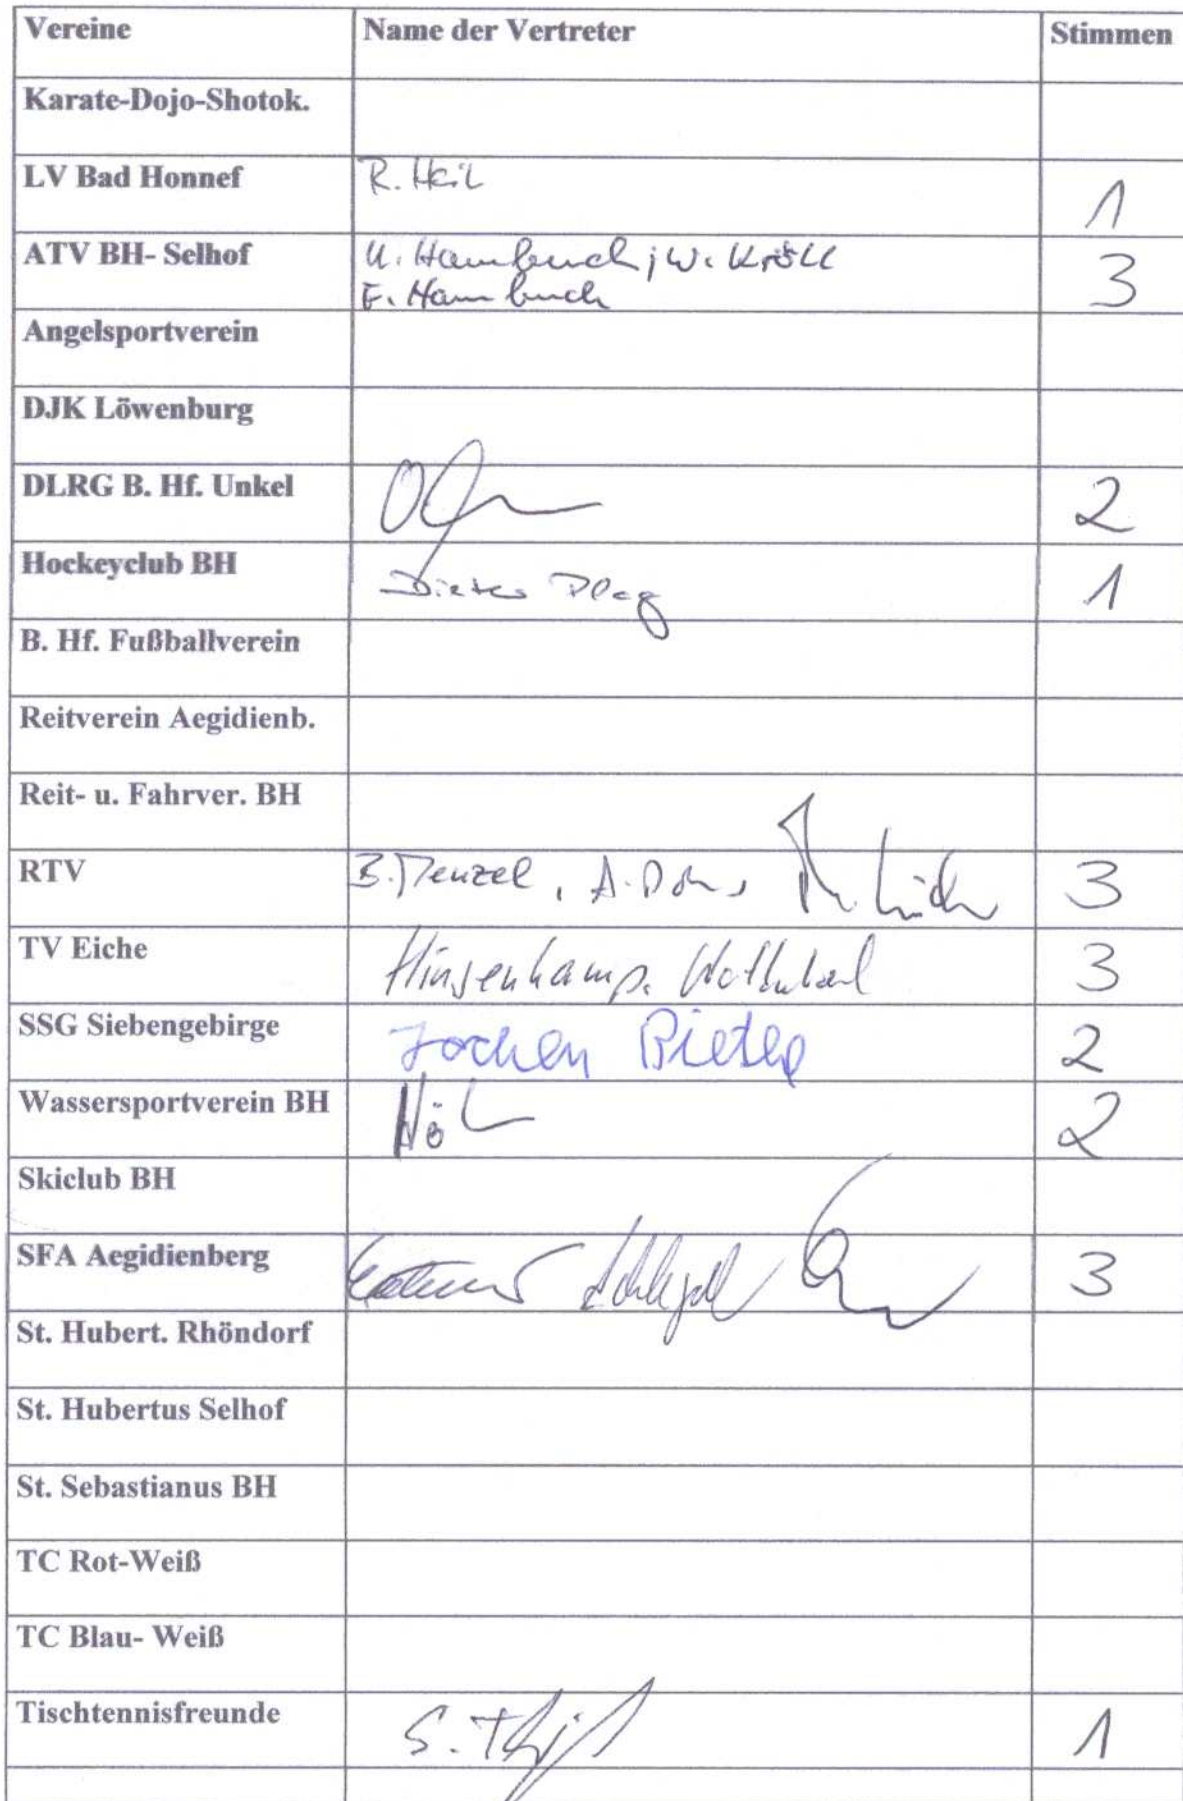 Vereine Name der Vertreter Stimmen
Karate-Dojo-Shotok.
LV Bad Honnef R. Heil 1
ATV BH- Selhof U. Hambuch; W. Kröll 3
E. Hambuch
Angelsportverein
DJK Löwenburg
DLRG B. Hf. Unkel 2
Hockeyclub BH Dieter 1
B. Hf. Fußballverein
Reitverein Aegidienb.
Reit- u. Fahrver. BH
RTV B. Menzel, A. 3
TV Eiche 3
SSG Siebengebirge Jochen 2
Wassersportverein BH 2
Skiclub BH
SFA Aegidienberg 3
St. Hubert. Rhöndorf
St. Hubertus Selhof
St. Sebastianus BH
TC Rot-Weiß
TC Blau- Weiß
Tischtennisfreunde S. 1